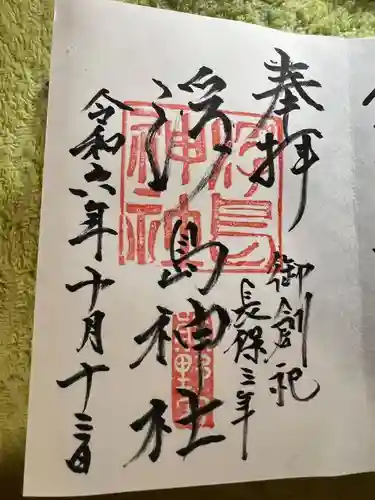 奉拝
御創祀
長保三年
浮島神社
令和六年十月十三日
浮島神社